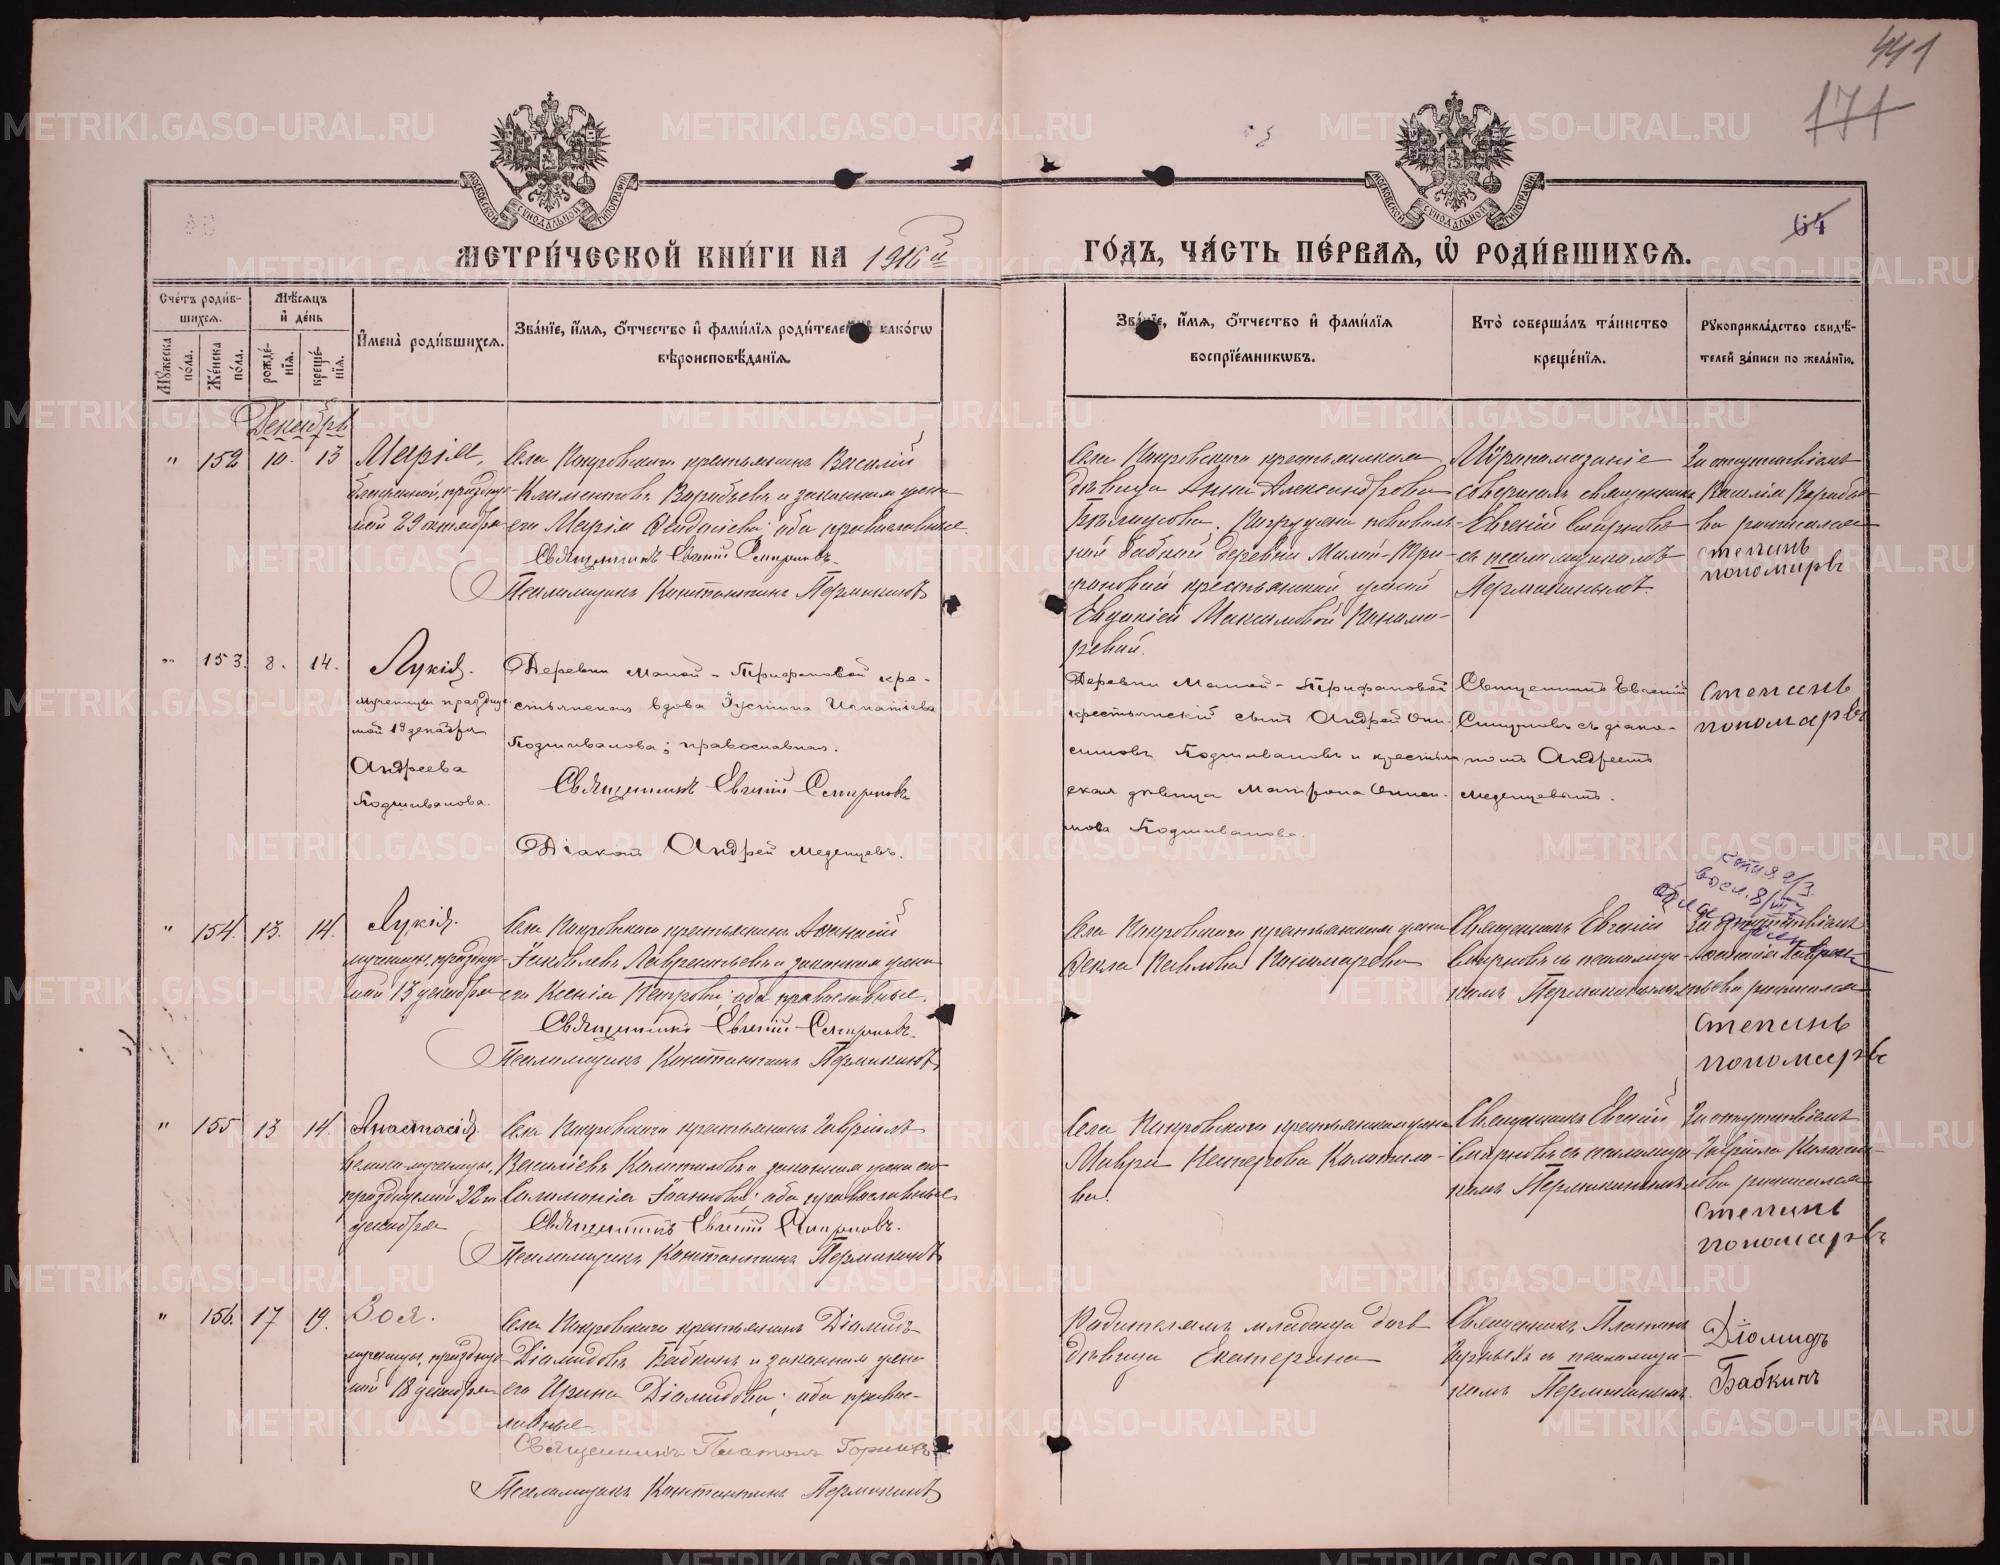 441
171
64
МОСКОВСКОЙ СѴНОДАЛЬНОЙ ТИПОГРАФІИ
МОСКОВСКОЙ СѴНОДАЛЬНОЙ ТИПОГРАФІИ
МЕТРИ́ЧЕСКОЙ КНИ́ГИ НА 1916й
ГО́ДЪ, ЧА́СТЬ ПЕ́РВАѦ, Ѡ҆ РОДИ́ВШИХСѦ.
Сче́тъ роди́в-
шихсѧ.
Мѣ́сѧцъ
и҆ де́нь
Мꙋжеска по́ла.
Же́нска по́ла.
рожде́-
нїѧ.
креще́-
нїѧ.
И҆мена̀ роди́вшихсѧ.
Зва́нїе, и҆́мѧ, ѻ҆́тчество и҆ фами́лїѧ роди́телей и҆ како́гѡ
вѣроисповѣ́данїѧ.
Зва́нїе, и҆́мѧ, ѻ҆́тчество и҆ фами́лїѧ
воспрїе́мникѡвъ.
Кто̀ соверша́лъ та́инство
креще́нїѧ.
Рꙋкоприкла́дство свидѣ́-
телей за́писи по жела́нїю.
Декабрь
" 152 10. 13
Марія,
блаженной, празднуе-
мой 29 октября
Села Покровскаго крестьянинъ Василій
Климентовъ Воробьевъ и законная жена
его Марія Ѳеодосіева; оба православные.
Священникъ Евгеній Смирновъ.
Псаломщикъ Константинъ Пермикинъ
Села Покровскаго крестьянская
дѣвица Анна Александрова
Погружена повиваль-
ной бабкой деревни Малой-Три-
фановой крестьянской женой
Евдокіей Максимовой Понома-
ревой.
Мѵропомазаніе
совершалъ священникъ
Евгеній Смирновъ
съ псаломщикомъ
Пермикинымъ.
За отсутствіемъ
Василія Воробье-
ва росписался
степанъ
пономаревъ
" 153. 8. 14.
Лукія.
мученицы празднуе-
мой 13 декабря
Андреева
Подшивалова.
Деревни Малой-Трифановой кре-
стьянская вдова Іустина Игнатіева
Подшивалова; православная.
Священникъ Евгеній Смирновъ
Діаконъ Андрей Меденцевъ.
Деревни Малой-Трифановой
крестьянскій сынъ Андрей Они-
симовъ Подшиваловъ и крестьян
ская дѣвица Матрона Ониси-
мова Подшивалова.
Священникъ Евгеній
Смирновъ съ діако-
номъ Андреемъ
Меденцевымъ.
Степанъ
пономаревъ
копія 9/3.
" 154. 13. 14.
Лукія.
мученицы, праздну-
мой 13 декабря
Села Покровскаго крестьянинъ Аѳанасій
Іаковлевъ Лаврентьевъ и законная жена
его Ксенія Петрова; оба православные.
Священникъ Евгеній Смирновъ.
Псаломщикъ Константинъ Пермикинъ
Села Покровскаго крестьянская жена
Ѳекла Павлова Пономарева
Священникъ Евгеній
Смирновъ съ псаломщи-
комъ Пермикинымъ
За отсутствіемъ
Аѳанасія Лаврен-
тьева росписался
степанъ
пономаревъ
" 155 13 14.
Анастасія.
великомученицы,
празднуемой 22го
декабря
Села Покровскаго крестьянинъ Гавріилъ
Василіевъ Колотиловъ и законная жена его
Соломонія Іоаннова; оба православные
Священникъ Евгеній Смирновъ.
Псаломщикъ Константинъ Пермикинъ
Села Покровскаго крестьянская жена
Мавра Нестерова Колотило-
ва.
Священникъ Евгеній
Смирновъ съ псаломщи-
комъ Пермикинымъ
За отсутствіемъ
Гавріила Колоти-
лова росписался
степанъ
пономаревъ
" 156. 17 19.
Зоя.
мученицы, праздну-
мой 18 декабря
Села Покровскаго крестьянинъ Діомидъ
Діомидовъ Бабкинъ и законная жена
его Ирина Діомидова; оба право-
славные
Священникъ Платонъ Горныхъ
Псаломщикъ Константинъ Пермикинъ
Родителямъ младенца дочь
дѣвица Екатерина
Священникъ Платонъ
Горныхъ съ псаломщи-
комъ Пермикинымъ.
Діомидъ
Бабкинъ
METRIKI.GASO-URAL.RU